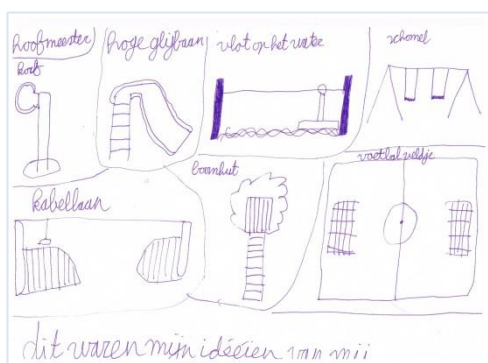 hoofmeester
korf
hoge glijbaan
vlot op het water
schomel
kabelbaan
boomhut
voetbal veldje
dit waren mijn idéeien van mij